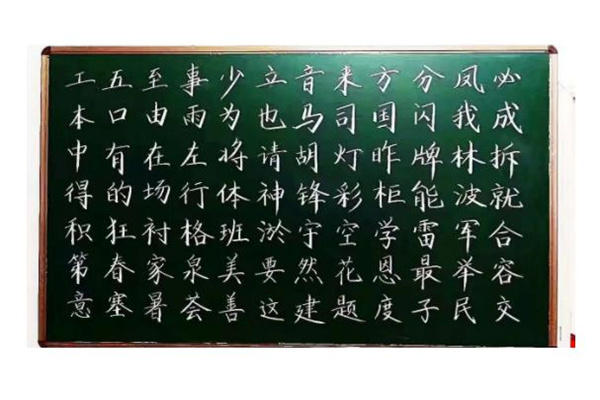 工五至事少立音来方分凤必
本口由雨为也马司国闪我成
中有在左将请胡灯昨牌林拆
得的场行体神锋彩柜能波就
积狂衬格班淤宇空学雷军合
第春家泉美要然花恩最举容
意塞暑荟善这建题度子民交